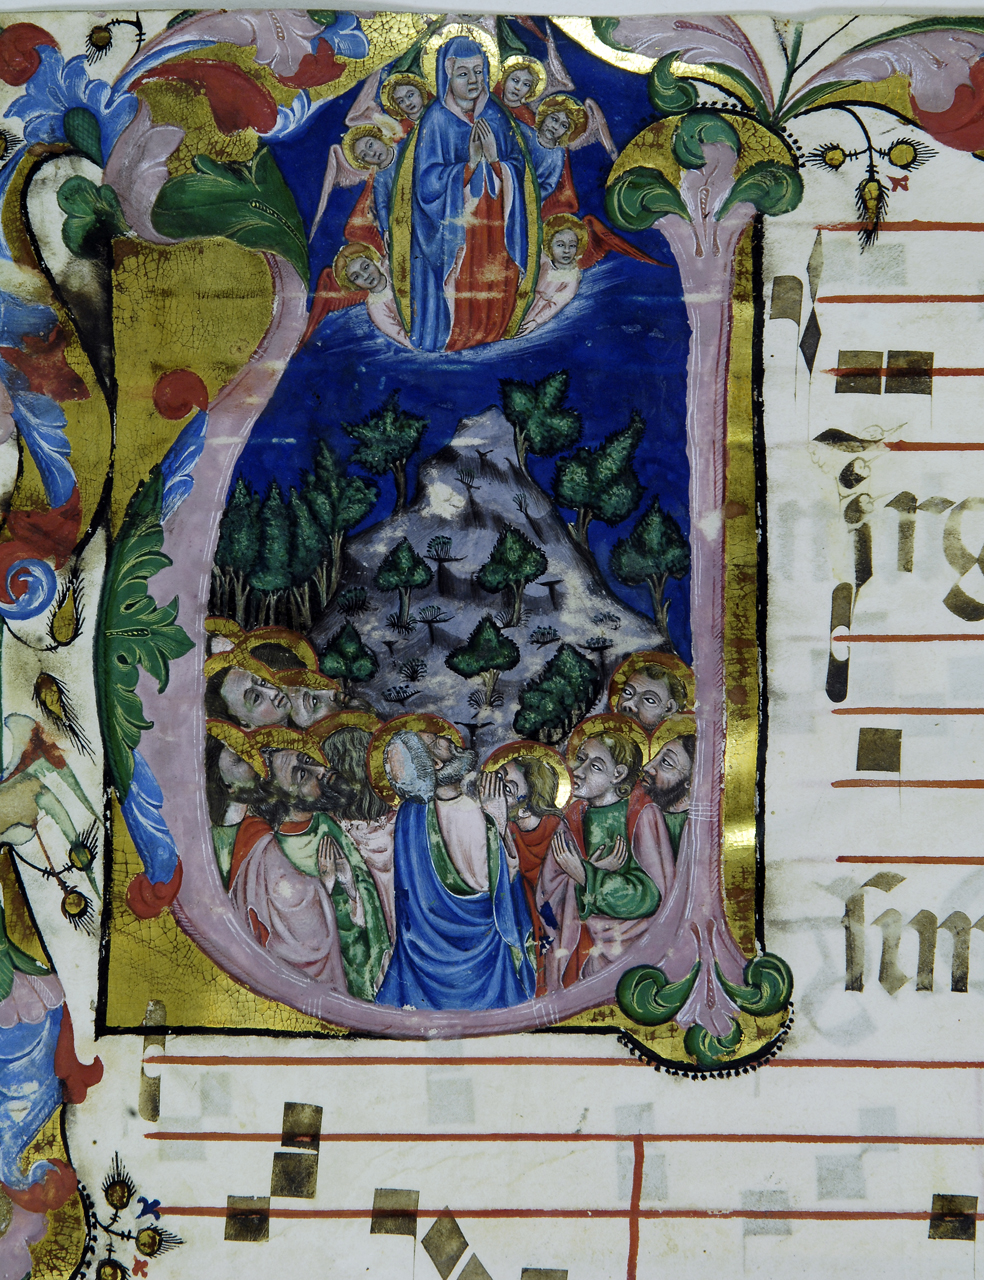 Virg
ſim